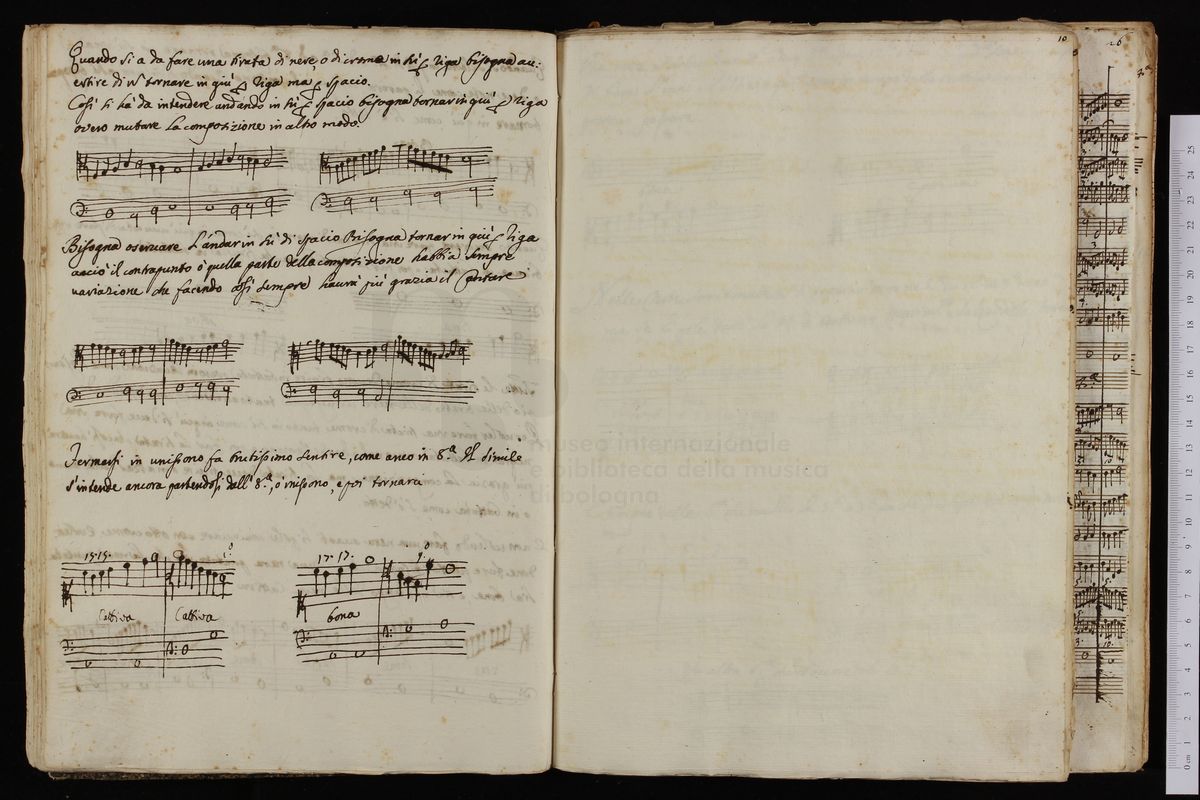 Quando si a da fare una tirata di nere, o di crome in sù p riga bisogna au:
ertire di nō tornare in giù p riga ma p spacio.
Cosi si hà da intendere andando in sù p spacio bisogna tornar in giù p riga
overo mutare la composizione in altro modo.
Bisogna oservare l'andar in sù di spacio Bisogna tornar in giù p riga
acciò il contrapunto ò quella parte della composizione habbia sempre
variazione che facendo cosi sempre haurà più grazia il Cantare
Fermarsi in unissono fa brutissimo sentire, come anco in 8.ª Il simile
s'intende ancora partendosi dall' 8.ª, ò unissono, e poi tornarci
15. 15. 8
Cattiva Cattiva
17. 17. 8
bona
10
26
museo internazionale
e biblioteca della musica
di bologna
0 cm 1 2 3 4 5 6 7 8 9 10 11 12 13 14 15 16 17 18 19 20 21 22 23 24 25